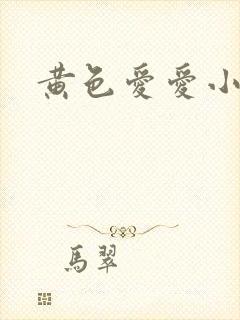 黄色愛愛小
馬翠